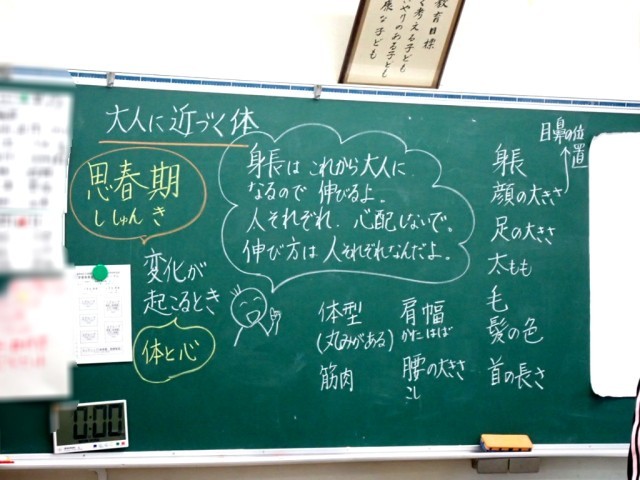 教育目標
考える子ども
いやりのある子ども
康な子ども
大人に近づく体
思春期
ししゅんき
変化が
起こるとき
体と心
身長は これから大人に
なるので 伸びるよ。
人それぞれ、心配しないで。
伸び方は人それぞれなんだよ。
体型
(丸みがある)
筋肉
肩幅
かたはば
腰の大きさ
こし
身長
顔の大きさ
足の大きさ
太もも
毛
髪の色
首の長さ
目鼻の位
置
0:00